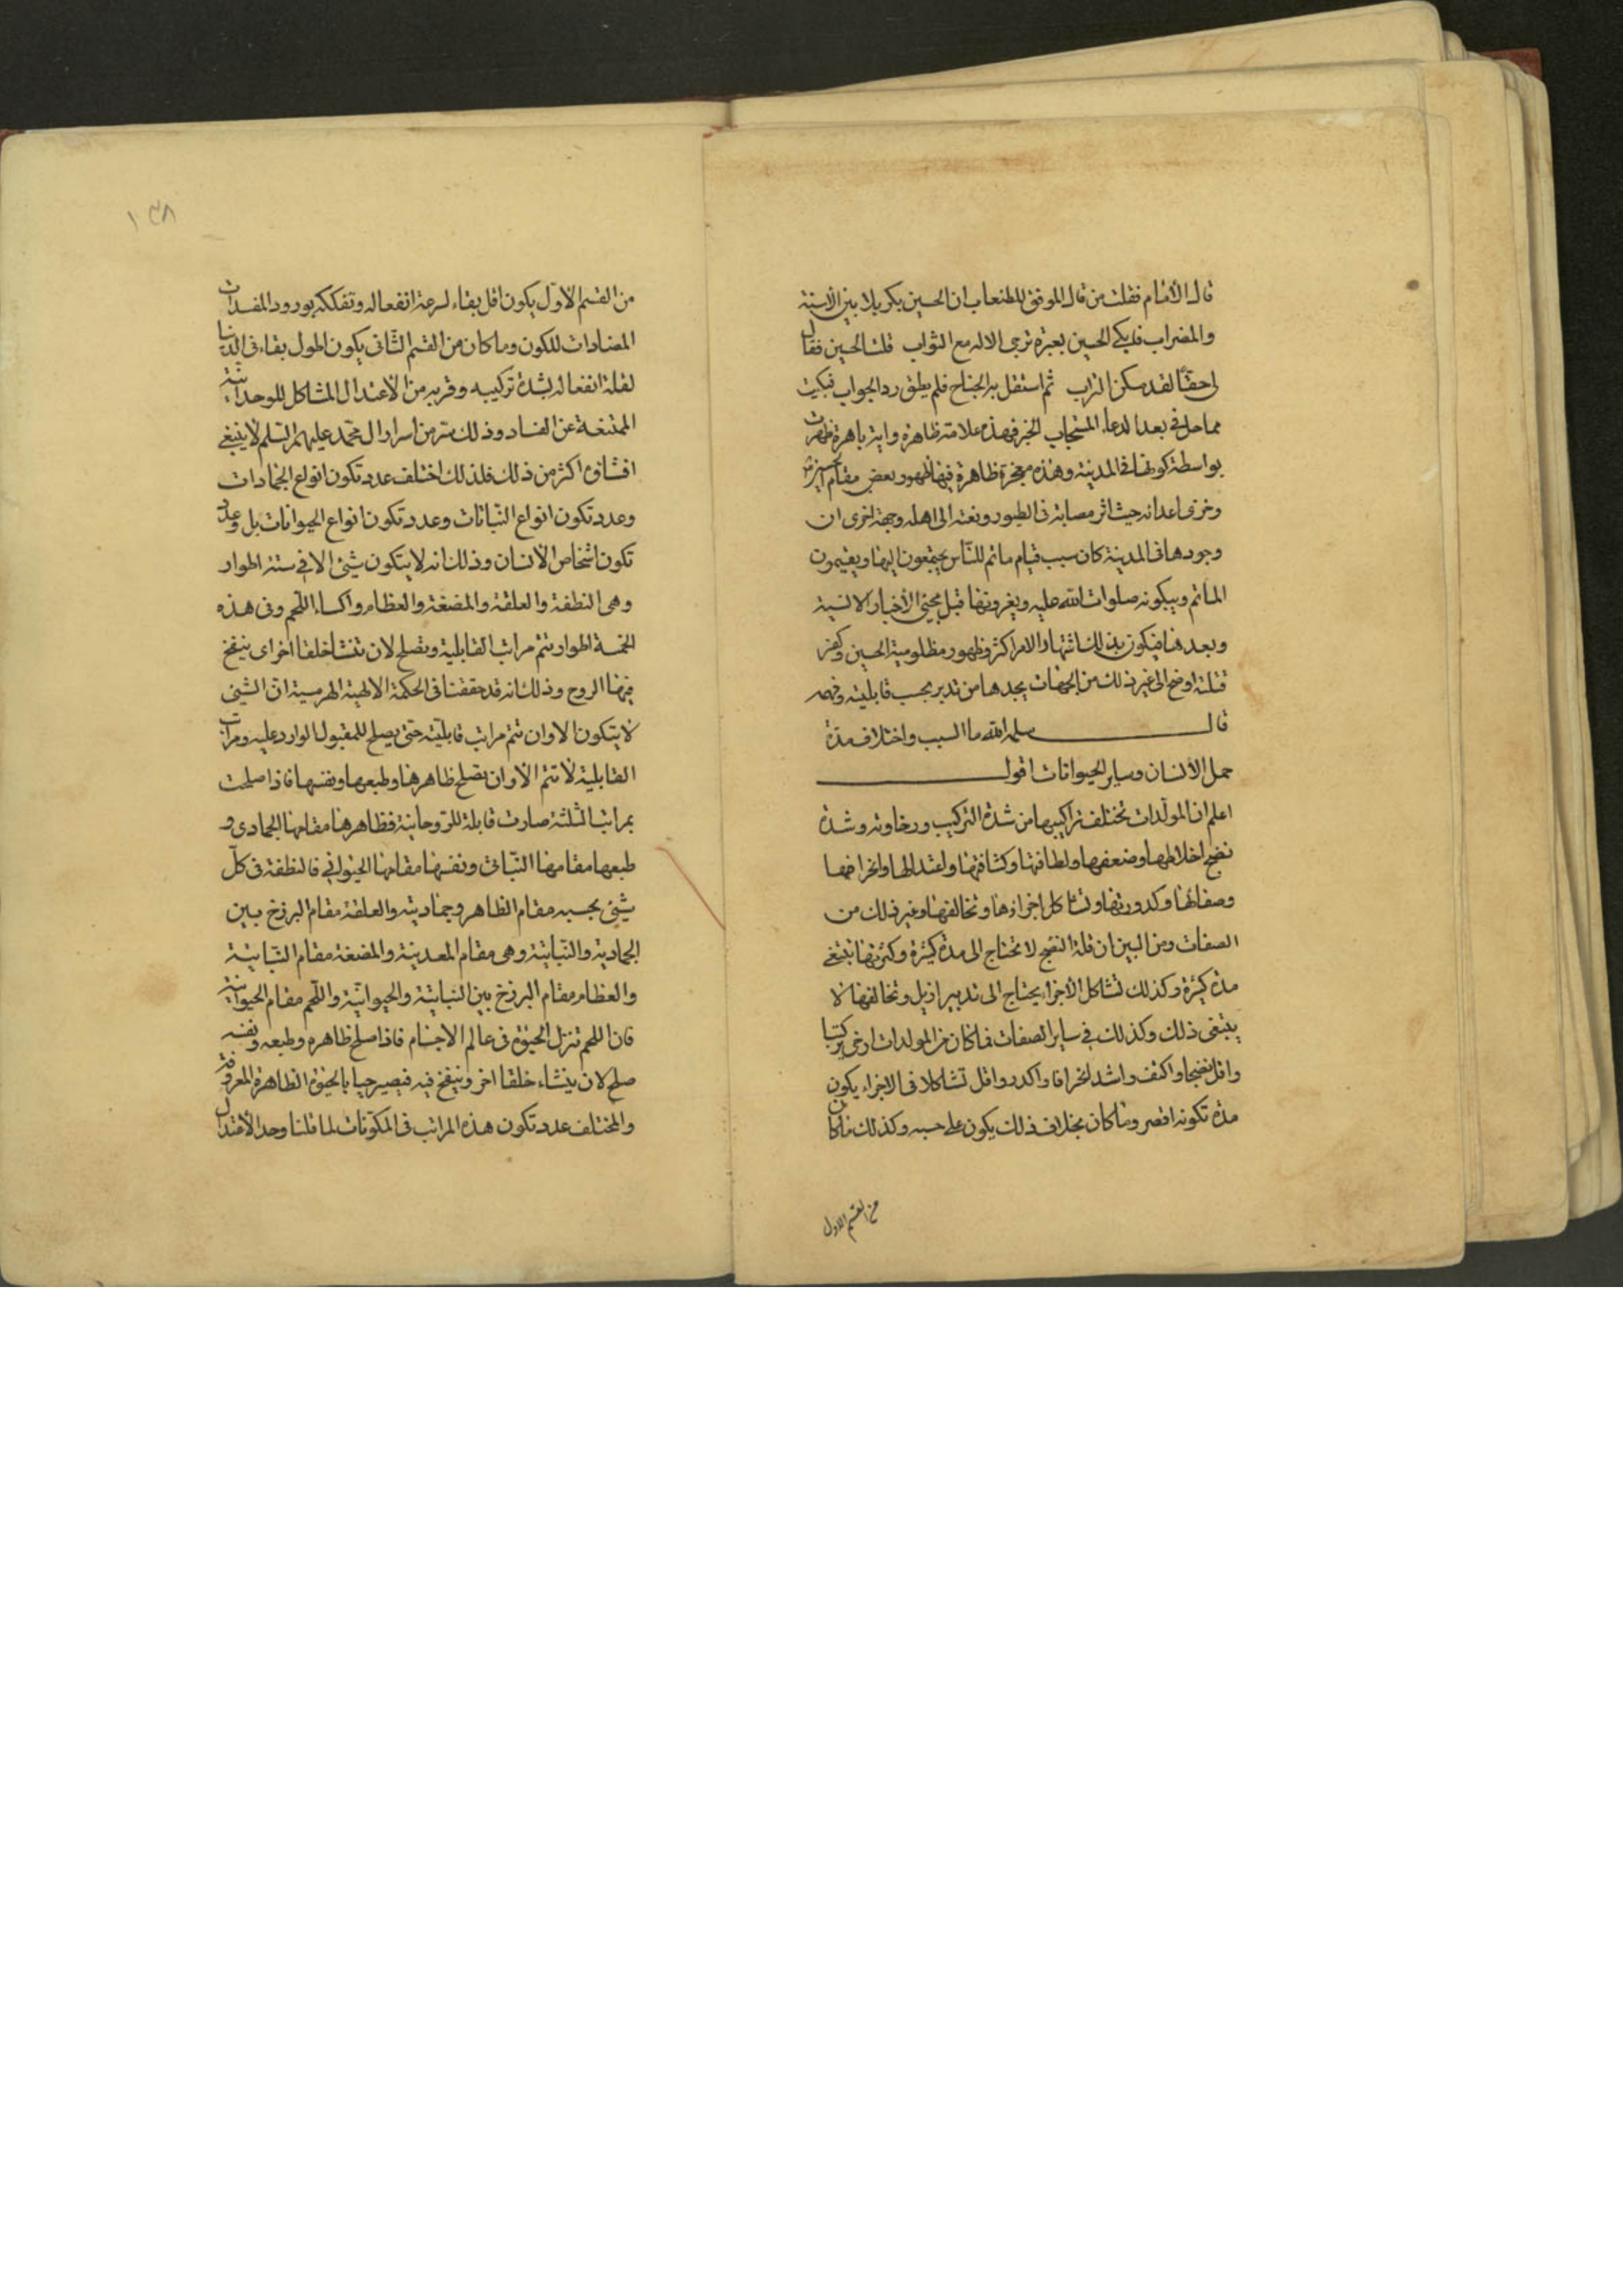 قال الامام فقلت من قال الموفق للطعاب ان الحسين بكربلا بين الاسنة
والضراب فابكي الحسين بعبرة ترجى الاله مع الثواب قلت الحسين فقال
لى حقا لقد سكن التراب ثم استقل به الجناح فلم يطق رد الجواب فبكيت
مما حل فى بعد الدعاء المستجاب الخبر فهذه علامة ظاهرة واية باهرة ظهرت
بواسطة كونها فى المدينة وهذه معجزة ظاهرة فيها ظهور بعض مقام
وخزى اعدائه حيث اثر مصابه فى الطيور ونعته الى اهله وجهة اخرى ان
وجودها فى المدينة كان سبب قيام ماتم للناس يجتمعون اليها ويقيمون
الماتم ويبكونه صلوات الله عليه ويغرونها قبل مجيئ الاخبار الانسية
وبعدها فيكون بذلك اشتهار الامر اكثر وظهور مظلومية الحسين وكفر
قتلته اوضح الى غير ذلك من الجهات يجدها من تدبر بحسب قابليته وفهمه
قال سلمه الله ما السبب واختلاف مدة
حمل الانسان وساير الحيوانات اقول
اعلم ان المولدات تختلف تراكيبها من شدة التركيب ورخاوته وشدة
نضج اخلاطها وضعفها ولطافتها وكثافتها واعتدالها وانحرافها
وصفائها وكدورتها وتشاكل اجزاءها وتخالفها وغير ذلك من
الصفات ومن البين ان قلة النضج لا تحتاج الى مدة كثيرة وكثرتها تبتغى
مدة كثيرة وكذلك تشاكل الاجزاء يحتاج الى تدبير ازيد وتخالفها لا
يبتغى ذلك وكذلك فى ساير الصفات فما كان من المولدات ارخى تركيبا
واقل نضجا واكثف واشد انحرافا واكدر واقل تشاكلا فى الاجزاء يكون
مدة تكونه اقصر وما كان بخلاف ذلك يكون على حسبه وكذلك ما كان
من القسم الاول
١٣٨
من القسم الاول يكون اقل بقاء لسرعة انفعاله وتفككه بورود المفسدات
المضادات للكون وما كان من القسم الثانى يكون اطول بقاء فى الدنيا
لقلة انفعاله لشدة تركيبه وقربه من الاعتدال المشاكل للوحدانية
الممتنعة عن الفساد وذلك سر من اسرار ال محمد عليهم السلم لا ينبغى
افشاؤه اكثر من ذلك فلذلك اختلف عدد تكون انواع الجمادات
وعدد تكون انواع النباتات وعدد تكون انواع الحيوانات بل وعدد
تكون اشخاص الانسان وذلك انه لا يتكون شيئ الا فى ستة اطوار
وهى النطفة والعلقة والمضغة والعظام واكساء اللحم وفى هذه
الخمسة اطوار تتم مراتب القابلية وتصلح لان تنشأ خلقا اخر اى ينفخ
فيها الروح وذلك انه قد حققنا فى الحكمة الالهية الهرمسية ان الشيئ
لا يتكون الا وان تتم مراتب قابليته حتى يصلح للمقبول الوارد عليه ومراتب
القابلية لا تتم الا وان يصلح ظاهرها وطبعها ونفسها فاذا صلحت
بمراتبها الثلثة صارت قابلة للروحانية فظاهرها مقامها الجمادى و
طبعها مقامها النباتى ونفسها مقامها الحيوانى فالنطفة فى كل
شيئ بحسبه مقام الظاهر وجماديته والعلقة مقام البرزخ بين
الجمادية والنباتية وهى مقام المعدنية والمضغة مقام النباتية
والعظام مقام البرزخ بين النباتية والحيوانية واللحم مقام الحيوانية
فان اللحم تنزل الحيوة فى عالم الاجسام فاذا صلح ظاهره وطبعه ونفسه
صلح لان ينشاء خلقا اخر وينفخ فيه فيصير حيا بالحيوة الظاهرة المعروفة
والمختلف عدد تكون هذه المراتب فى المكونات لما قلنا وحد الاعتدال